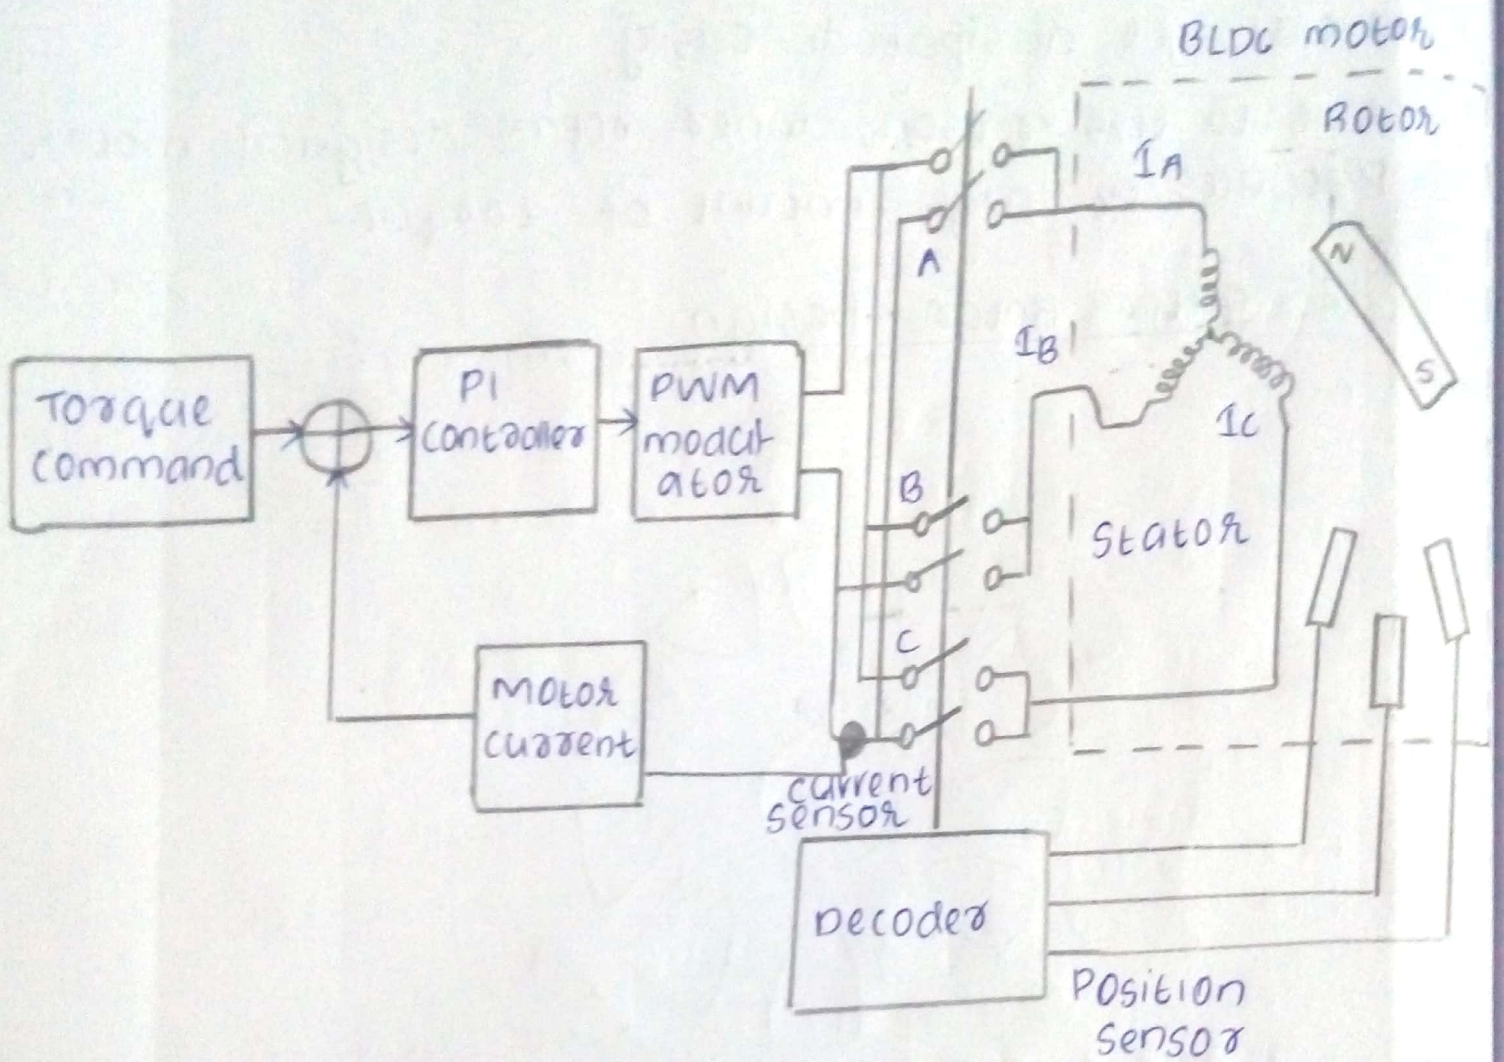 BLDC motor
Rotor
IA
N
S
A
IB
IC
Torque
command
PI
controller
PWM
modul
ator
B
Stator
C
Motor
current
current
sensor
Decoder
Position
sensor